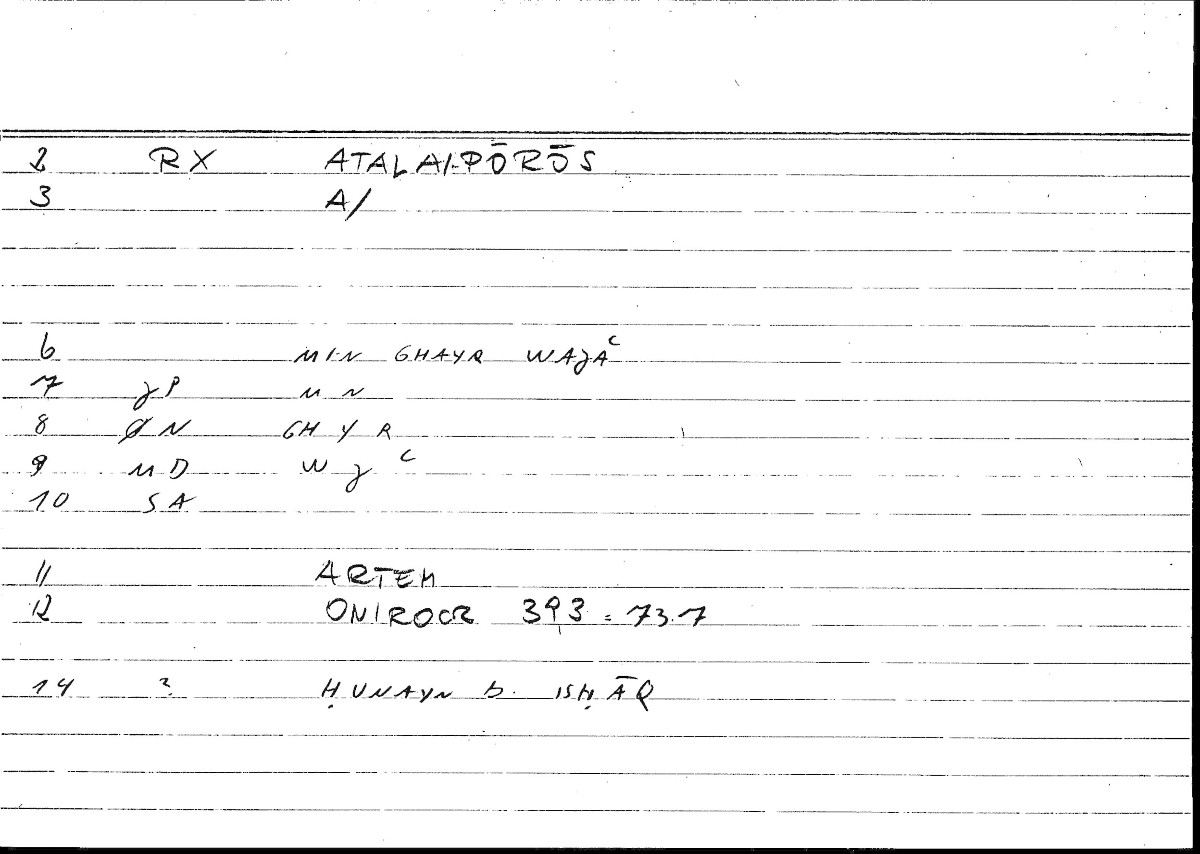 2 RX ATALAIPŌRŌS
3 A/
6 MIN GHAYR WAJAʿ
7 JP MN
8 ØN GHYR
9 MD WJʿ
10 SA
11 ARTEM
12 ONIROCR 393,1 = 73.7
14 ? ḤUNAYN b. ISḤĀQ